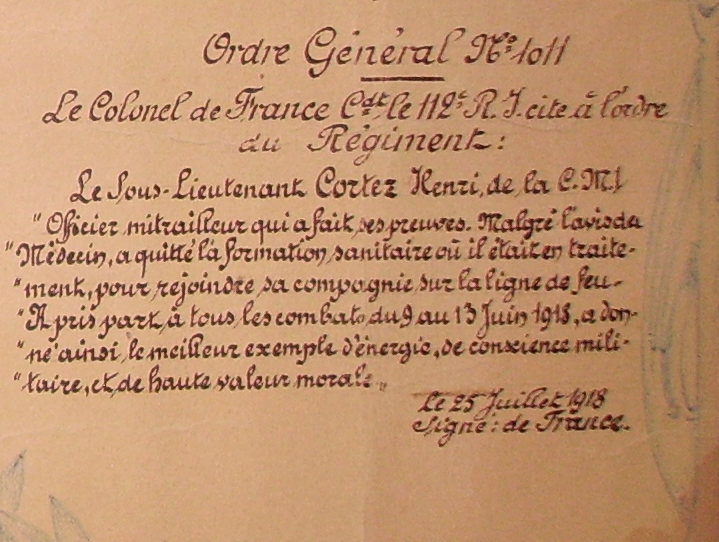 Ordre Général N° 1011
Le Colonel de France Cdt le 112e R.I. cite à l'ordre
du Régiment :
Le Sous-Lieutenant Cortez Henri, de la C.M.1
"Officier mitrailleur qui a fait ses preuves. Malgré l'avis du
"Médecin, a quitté la formation sanitaire où il était en traite-
"ment, pour rejoindre sa compagnie sur la ligne de feu -
"A pris part à tous les combats du 9 au 13 Juin 1918, a don-
"né ainsi le meilleur exemple d'énergie, de conscience mili-
"taire, et de haute valeur morale„
Le 25 Juillet 1918
Signé : de France.